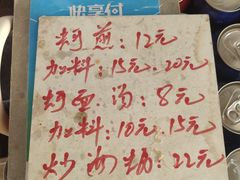 快享付
蚵煎：12元
加料：15元.20元
蚵面.汤：8元
加料：10元.15元
炒海蛎：22元